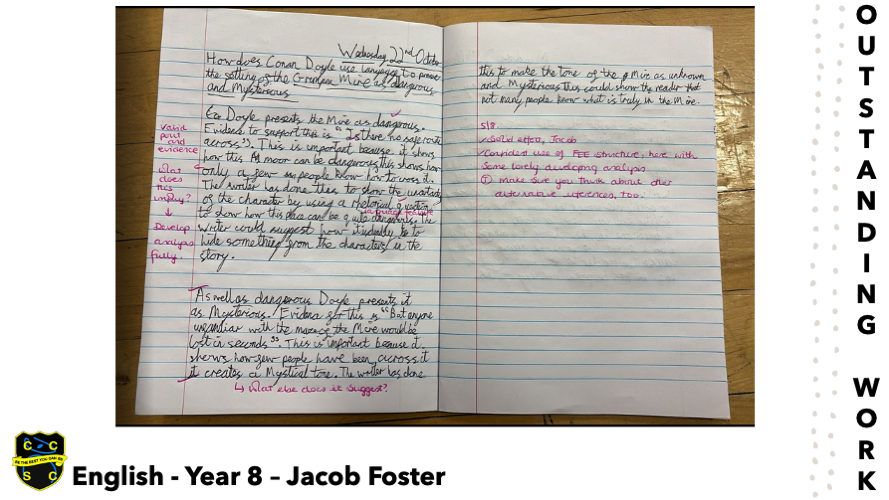 Wednesday 22nd October
How does Conan Doyle use language to
the setting of the Grimpen Mire as dangerous
and Mysterious
Doyle presents the Mire as dangerous.
Evidence to support this is "Is there no safe route
across". This is important because it shows
how this moor can be dangerous this shows how
only a few people know how to cross it.
The writer has done this to show the
of the character by using a rhetorical question
to show how this place can be quite dangerous. The
writer could suggest how it to
hide something from the characters in the
story.
valid
point
and
evidence
What
does
this
imply?
↓
Develop
analysis
fully.
language feature
As well as dangerous Doyle presents it
as Mysterious. Evidence for this is "But anyone
with the maze of the Mire would be
lost in seconds". This is important because it
shows how few people have been across it
it creates a Mystical tone. The writer has done
↳ What else does it suggest?
this to make the tone of the Mire as unknown
and Mysterious this could show the reader that
not many people know what is truly in the Mire.
5/8
✓ Solid effort, Jacob
✓ Confident use of structure, here with
some lovely developing analysis
T Make sure you think about other
alternative inferences, too.
C C
BE THE BEST YOU CAN BE
S C
English - Year 8 – Jacob Foster
OUTSTANDING WORK